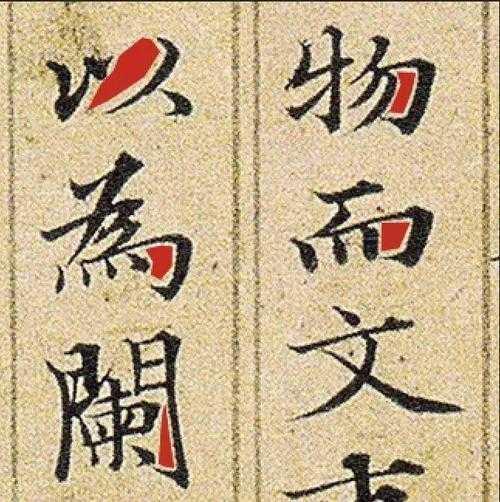 物而文
以為闌